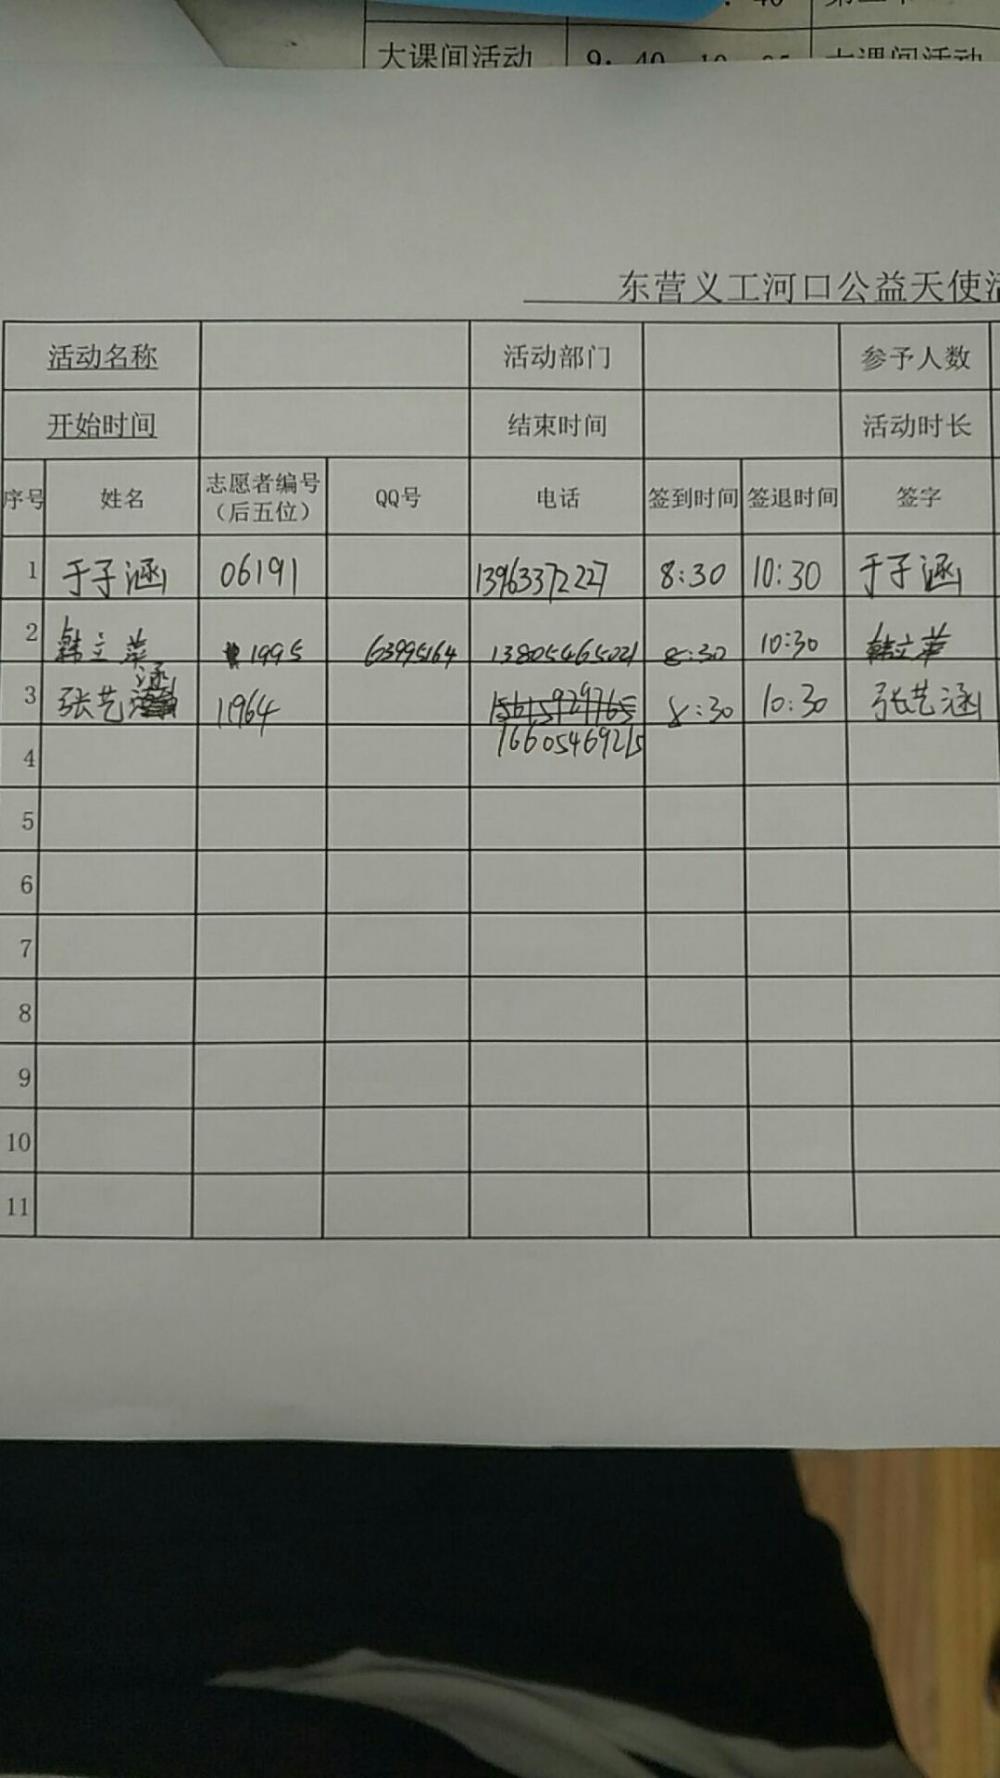 大课间活动 9：40 大课间活动
东营义工河口公益天使活
活动名称 活动部门 参予人数
开始时间 结束时间 活动时长
序号 姓名 志愿者编号（后五位） QQ号 电话 签到时间 签退时间 签字
1 于子涵 06191 13963372227 8:30 10:30 于子涵
2 韩立苹 1995 63995164 13805465021 8:30 10:30 韩立苹
3 张艺涵 11964 15615929765 8:30 10:30 张艺涵
16605469215
4
5
6
7
8
9
10
11